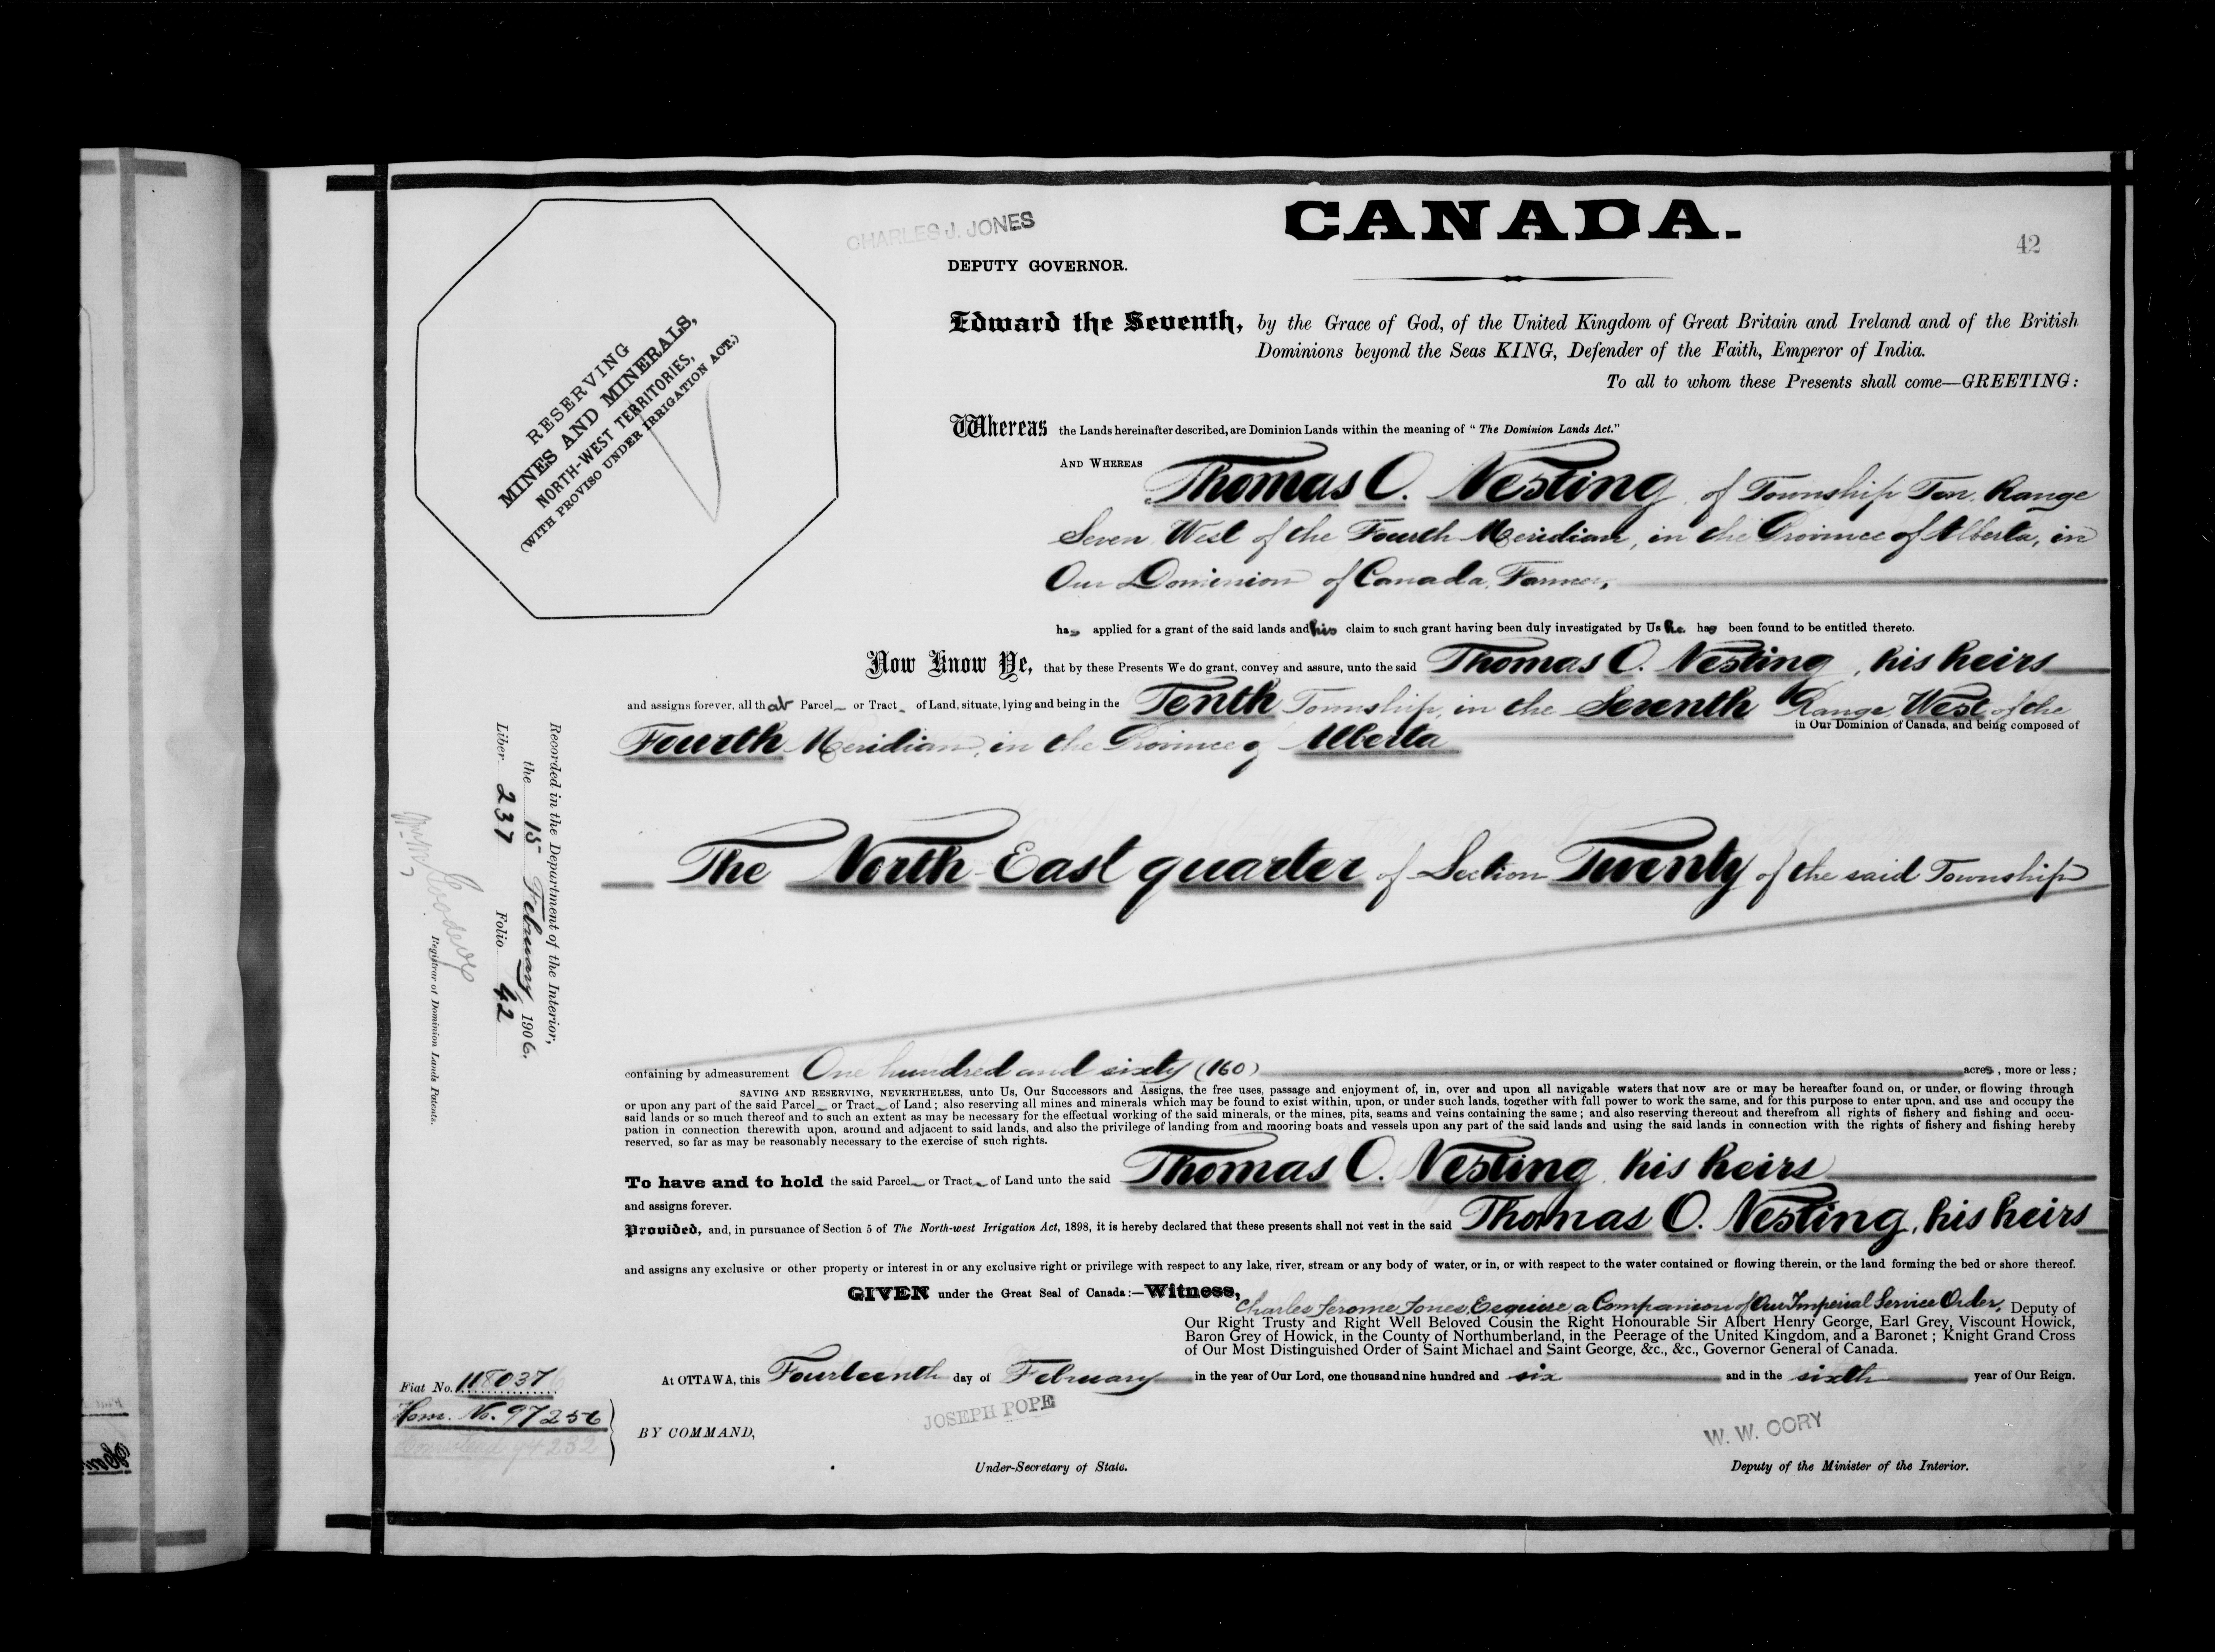 CHARLES J. JONES
CANADA.
42
DEPUTY GOVERNOR.
RESERVING
MINES AND MINERALS,
NORTH-WEST TERRITORIES,
(WITH PROVISO UNDER IRRIGATION ACT.)
Edward the Seventh, by the Grace of God, of the United Kingdom of Great Britain and Ireland and of the British
Dominions beyond the Seas KING, Defender of the Faith, Emperor of India.
To all to whom these Presents shall come—GREETING:
Whereas the Lands hereinafter described, are Dominion Lands within the meaning of "The Dominion Lands Act."
AND WHEREAS Thomas O. Nesting, of Township Ten, Range
Seven West of the Fourth Meridian, in the Province of Alberta, in
Our Dominion of Canada, Farmer,
has applied for a grant of the said lands and his claim to such grant having been duly investigated by Us he has been found to be entitled thereto.
Now Know Ye, that by these Presents We do grant, convey and assure, unto the said Thomas O. Nesting, his heirs
and assigns forever, all that Parcel or Tract of Land, situate, lying and being in the Tenth Township, in the Seventh Range West of the
Fourth Meridian, in the Province of Alberta in Our Dominion of Canada, and being composed of
The North East quarter of Section Twenty of the said Township
Recorded in the Department of the Interior,
the 15 February 1906.
Liber 237 Folio 42
Registrar of Dominion Lands Patents.
containing by admeasurement One hundred and sixty (160) acres, more or less;
SAVING AND RESERVING, NEVERTHELESS, unto Us, Our Successors and Assigns, the free uses, passage and enjoyment of, in, over and upon all navigable waters that now are or may be hereafter found on, or under, or flowing through
or upon any part of the said Parcel or Tract of Land; also reserving all mines and minerals which may be found to exist within, upon, or under such lands, together with full power to work the same, and for this purpose to enter upon, and use and occupy the
said lands or so much thereof and to such an extent as may be necessary for the effectual working of the said minerals, or the mines, pits, seams and veins containing the same; and also reserving thereout and therefrom all rights of fishery and fishing and occu-
pation in connection therewith upon, around and adjacent to said lands, and also the privilege of landing from and mooring boats and vessels upon any part of the said lands and using the said lands in connection with the rights of fishery and fishing hereby
reserved, so far as may be reasonably necessary to the exercise of such rights.
To have and to hold the said Parcel or Tract of Land unto the said Thomas O. Nesting, his heirs
and assigns forever.
Provided, and, in pursuance of Section 5 of The North-west Irrigation Act, 1898, it is hereby declared that these presents shall not vest in the said Thomas O. Nesting, his heirs
and assigns any exclusive or other property or interest in or any exclusive right or privilege with respect to any lake, river, stream or any body of water, or in, or with respect to the water contained or flowing therein, or the land forming the bed or shore thereof.
GIVEN under the Great Seal of Canada:—Witness,
Charles Jerome Jones, Esquire, a Companion of Our Imperial Service Order, Deputy of
Our Right Trusty and Right Well Beloved Cousin the Right Honourable Sir Albert Henry George, Earl Grey, Viscount Howick,
Baron Grey of Howick, in the County of Northumberland, in the Peerage of the United Kingdom, and a Baronet; Knight Grand Cross
of Our Most Distinguished Order of Saint Michael and Saint George, &c., &c., Governor General of Canada.
At OTTAWA, this Fourteenth day of February in the year of Our Lord, one thousand nine hundred and six and in the sixth year of Our Reign.
Fiat No. 118037
Hom. No. 97256
BY COMMAND,
JOSEPH POPE
Under-Secretary of State.
W. W. CORY
Deputy of the Minister of the Interior.